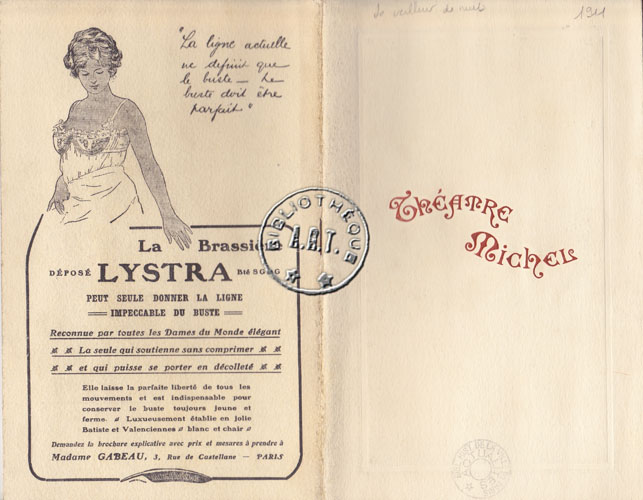 "La ligne actuelle
ne définit que
le buste — Le
buste doit être
parfait"
La Brassière
DÉPOSÉ LYSTRA Bté SGDG
PEUT SEULE DONNER LA LIGNE
IMPECCABLE DU BUSTE
Reconnue par toutes les Dames du Monde élégant
La seule qui soutienne sans comprimer
et qui puisse se porter en décolleté
Elle laisse la parfaite liberté de tous les
mouvements et est indispensable pour
conserver le buste toujours jeune et
ferme. Luxueusement établie en jolie
Batiste et Valenciennes blanc et chair
Demandez la brochure explicative avec prix et mesures à prendre à
Madame GABEAU, 3, Rue de Castellane — PARIS
BIBLIOTHÈQUE
A.R.T.
Le veilleur de nuit
1911
THÉATRE
MICHEL